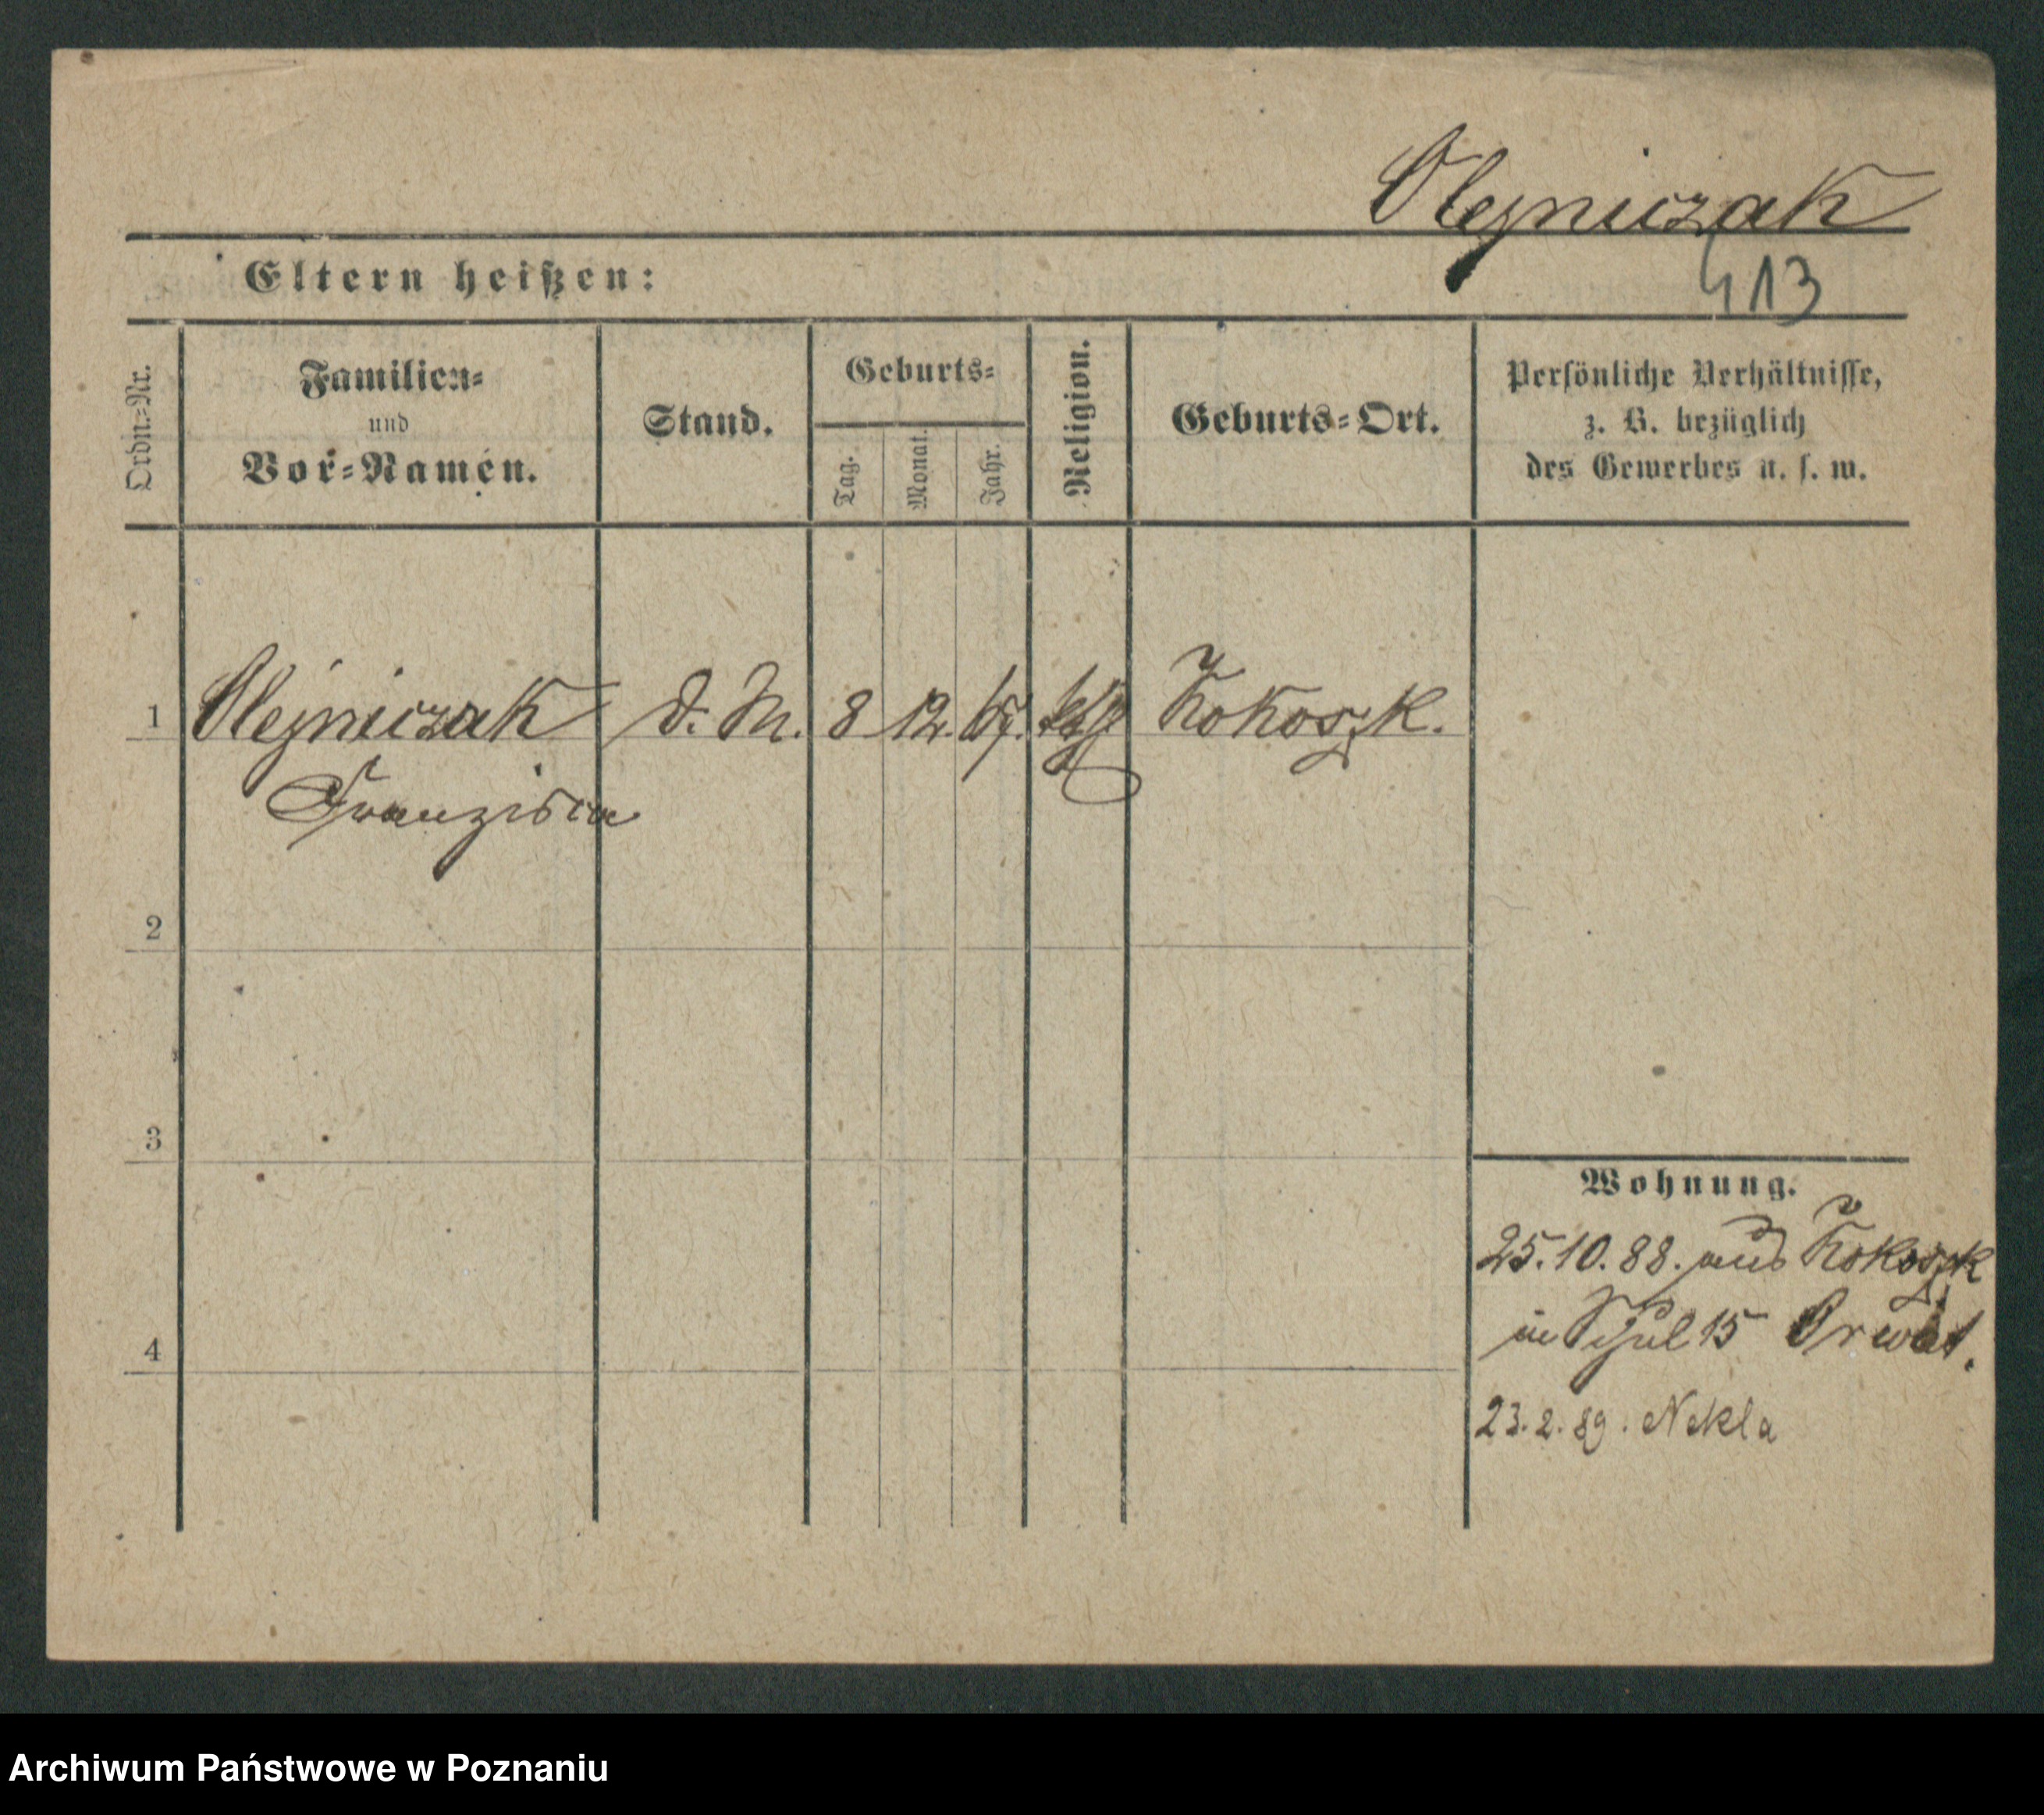 Olejniczak
413
Eltern heißen:
Ordn.=Nr.
Familien=
und
Vor=Namen.
Stand.
Geburts=
Tag.
Monat.
Jahr.
Religion.
Geburts=Ort.
Persönliche Verhältnisse,
z. B. bezüglich
des Gewerbes u. s. w.
1 Olejniczak d. M. 8 12. Kokoszk.
Franziska
2
3
4
Wohnung.
25.10.88. aus Kokoszk
in 15
23.2.89. Nekla
Archiwum Państwowe w Poznaniu